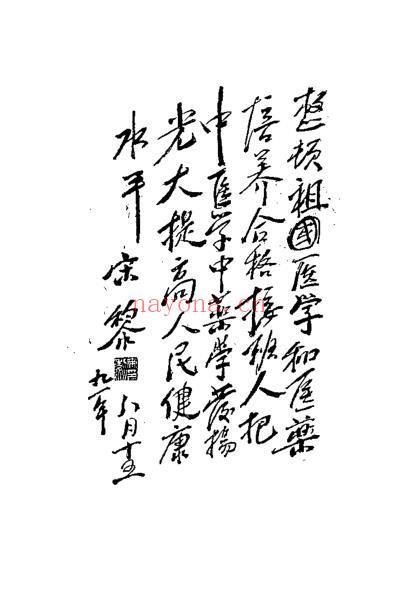 整顿祖国医学和医藥
培养合格接班人把
中医学中藥學發揚
光大提高人民健康
水平 宋黎
九一年 八月十五
nayona.cn